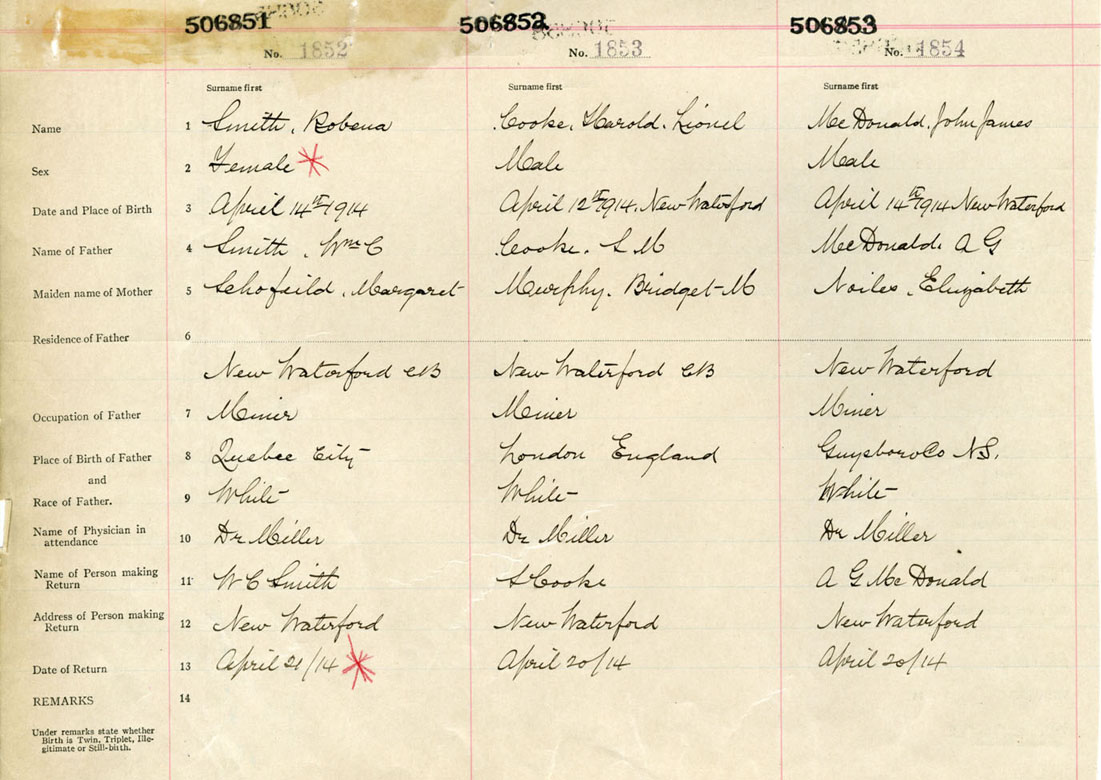 506851 506852 506853
No. 1852 No. 1853 No. 1854
Surname first Surname first Surname first
Name 1 Smith, Robena Cooke, Harold, Lionel McDonald, John James
Sex 2 Female Male Male
Date and Place of Birth 3 April 14th 1914 April 12th 1914, New Waterford April 14th 1914 New Waterford
Name of Father 4 Smith, Wm C Cooke, S M McDonald, A G
Maiden name of Mother 5 Schofeild, Margaret Murphy, Bridget M Noiles, Elizabeth
Residence of Father 6
New Waterford CB New Waterford CB New Waterford
Occupation of Father 7 Miner Miner Miner
Place of Birth of Father 8 Quebec City London England Guysboro Co N.S.
and
Race of Father. 9 White White White
Name of Physician in
attendance 10 Dr Miller Dr Miller Dr Miller
Name of Person making
Return 11 W C Smith S Cooke A G McDonald
Address of Person making
Return 12 New Waterford New Waterford New Waterford
Date of Return 13 April 21/14 April 20/14 April 20/14
REMARKS 14
Under remarks state whether
Birth is Twin, Triplet, Ille-
gitimate or Still-birth.